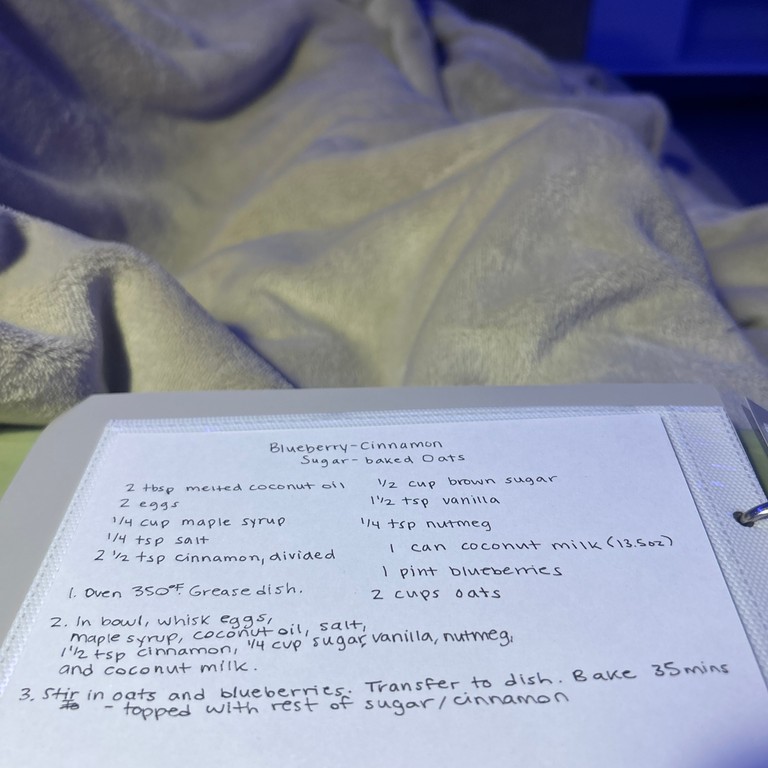 Blueberry-Cinnamon
Sugar-baked Oats
2 tbsp melted coconut oil
2 eggs
1/4 cup maple syrup
1/4 tsp salt
2 1/2 tsp cinnamon, divided
1/2 cup brown sugar
1 1/2 tsp vanilla
1/4 tsp nutmeg
1 can coconut milk (13.5oz)
1 pint blueberries
2 cups oats
1. Oven 350°F. Grease dish.
2. In bowl, whisk eggs,
maple syrup, coconut oil, salt,
1 1/2 tsp cinnamon, 1/4 cup sugar, vanilla, nutmeg,
and coconut milk.
3. Stir in oats and blueberries. Transfer to dish. Bake 35mins
- topped with rest of sugar/cinnamon